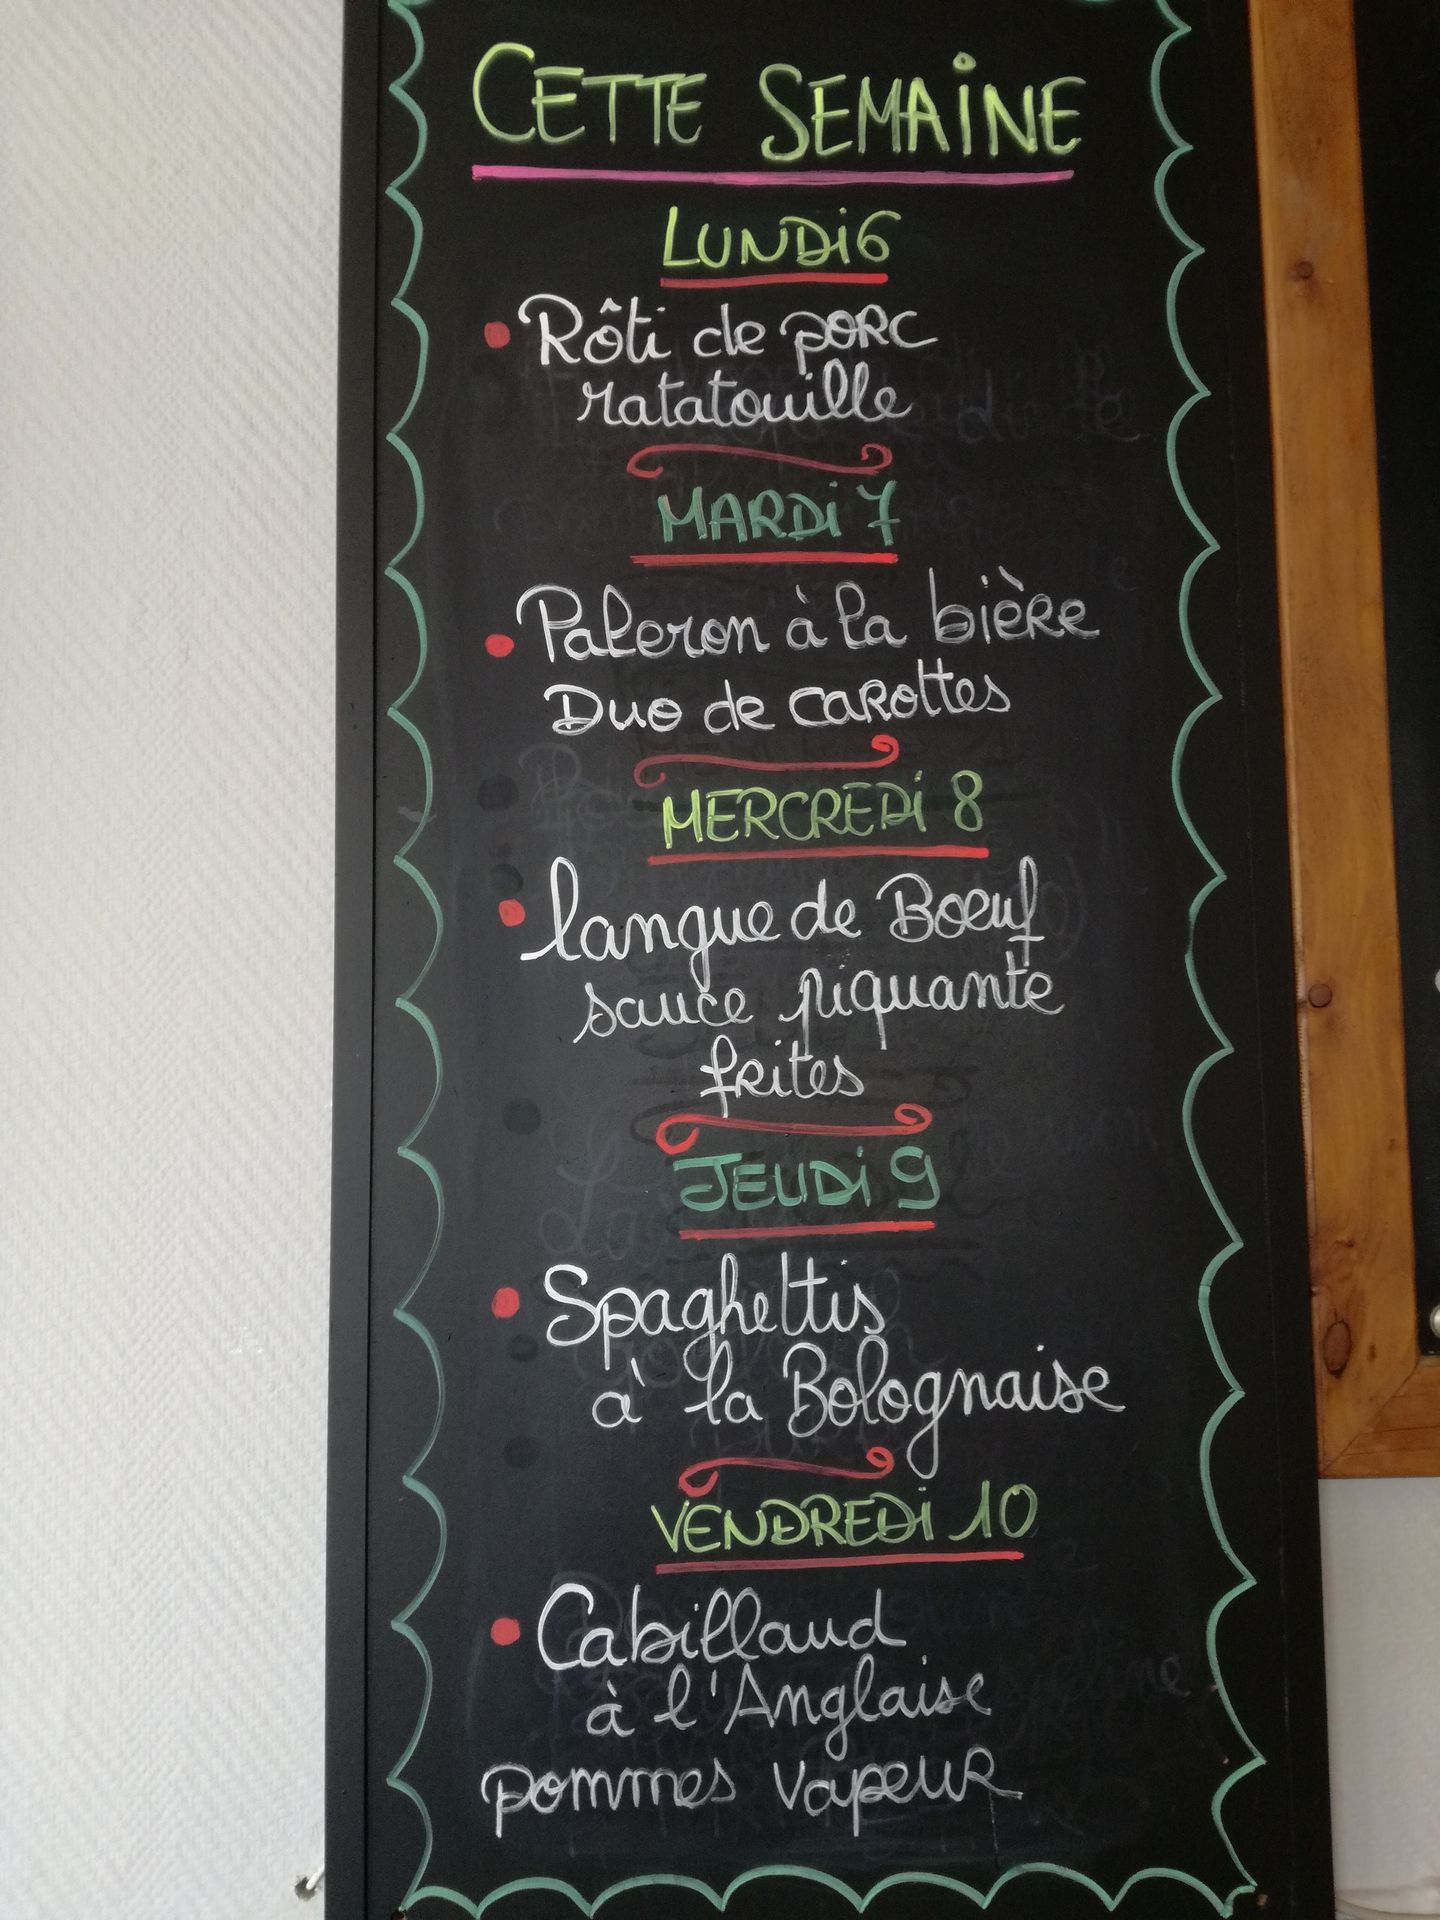 CETTE SEMAINE
LUNDI 6
Rôti de porc
ratatouille
MARDI 7
Paleron à la bière
Duo de carottes
MERCREDI 8
langue de Bœuf
sauce piquante
frites
JEUDI 9
Spaghettis
à la Bolognaise
VENDREDI 10
Cabillaud
à l'Anglaise
pommes vapeur